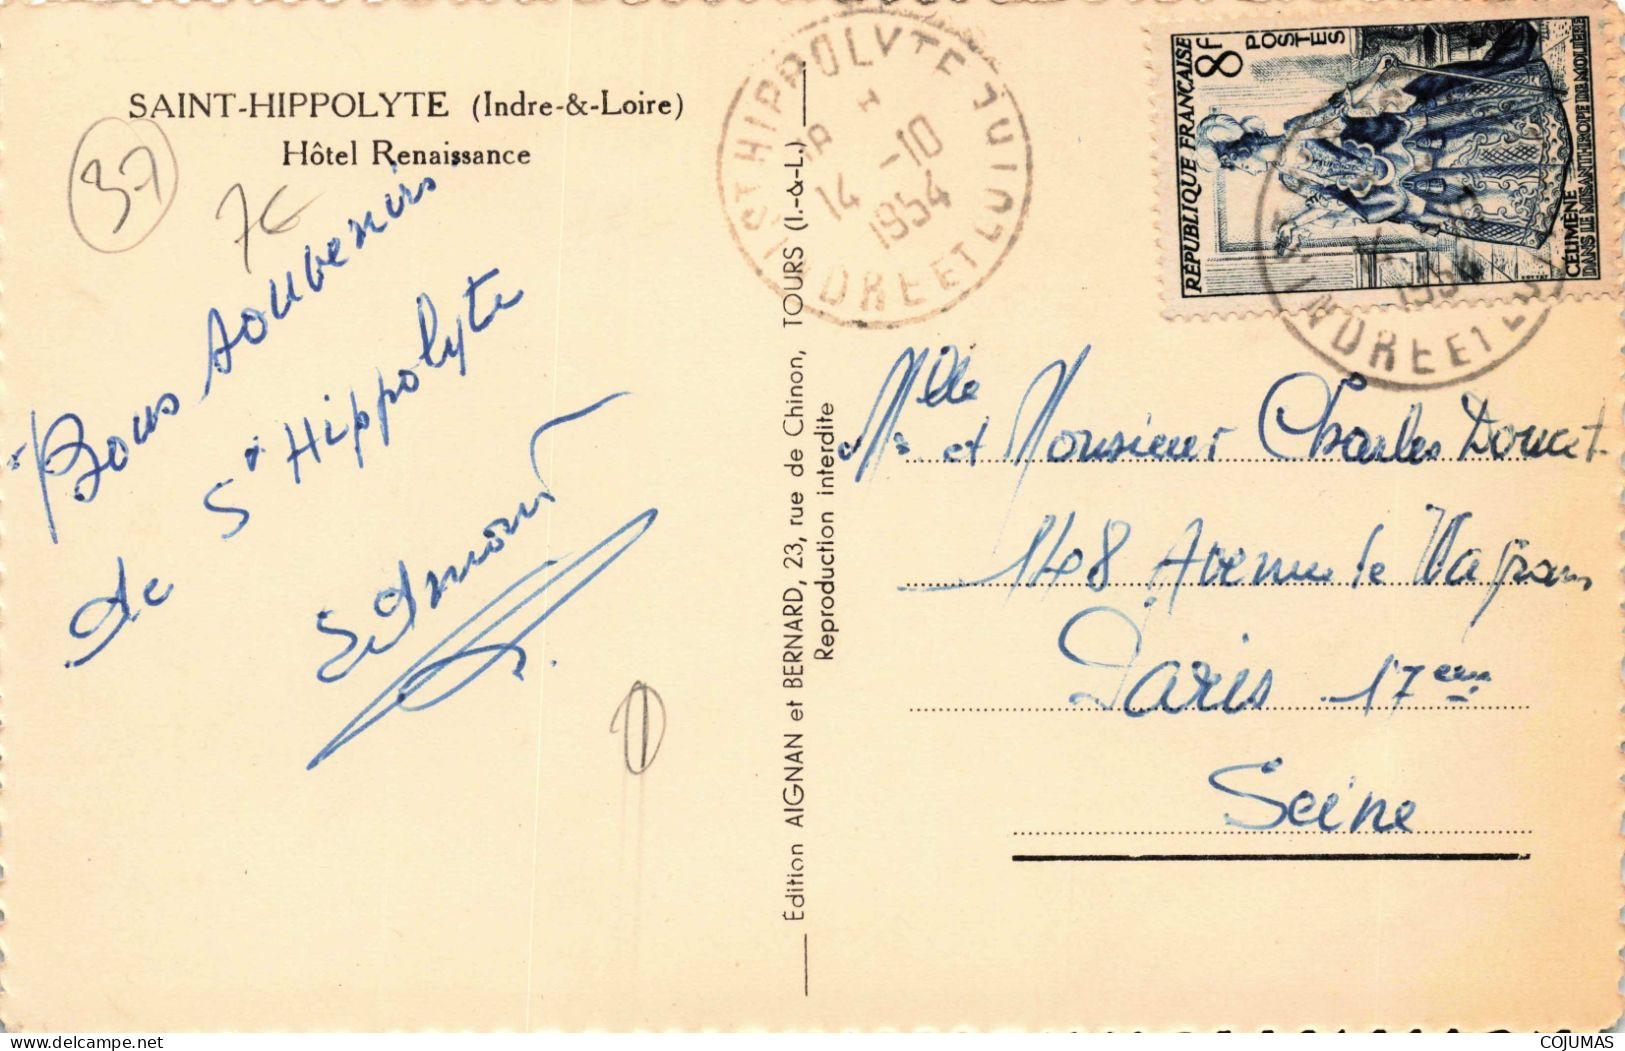 SAINT-HIPPOLYTE (Indre-&-Loire)
Hôtel Renaissance
37
7€
Bons souvenirs
de St Hippolyte
Édition AIGNAN et BERNARD, 23, rue de Chinon, TOURS (I.-&-L.)
Reproduction interdite
ST HIPPOLYTE
14 -10
1954
INDRE ET LOIRE
RÉPUBLIQUE FRANÇAISE
8F
POSTES
CÉLIMÈNE
DANS LE MISANTHROPE DE MOLIÈRE
1954
INDRE ET LOI
Mlle
et Monsieur Charles Doucet
148 Avenue de Wagram
Paris 17eme
Seine
COJUMAS